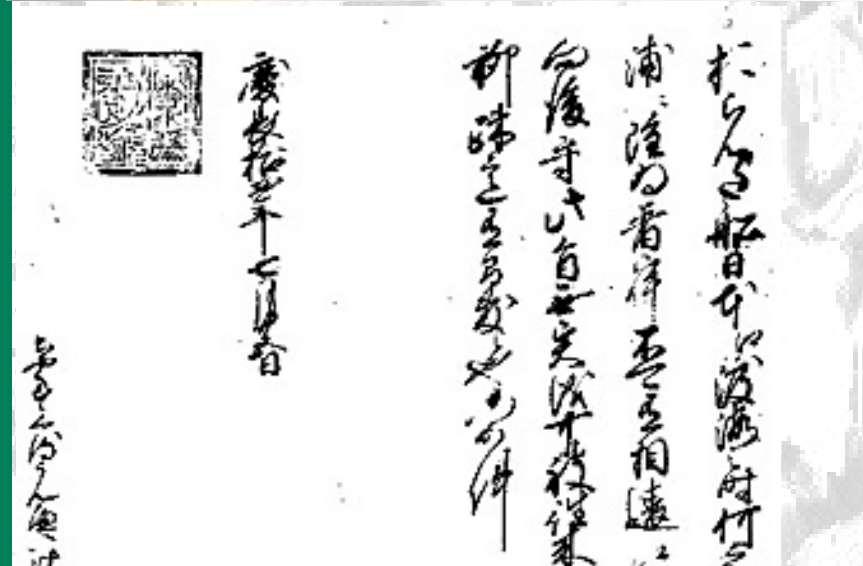 おらんだ船日本江渡海之時何
浦ニ雖為着岸不可有相違
向後守此旨無異儀可被往来
聊疎意有間敷候也仍如件
慶長拾四年七月廿五日